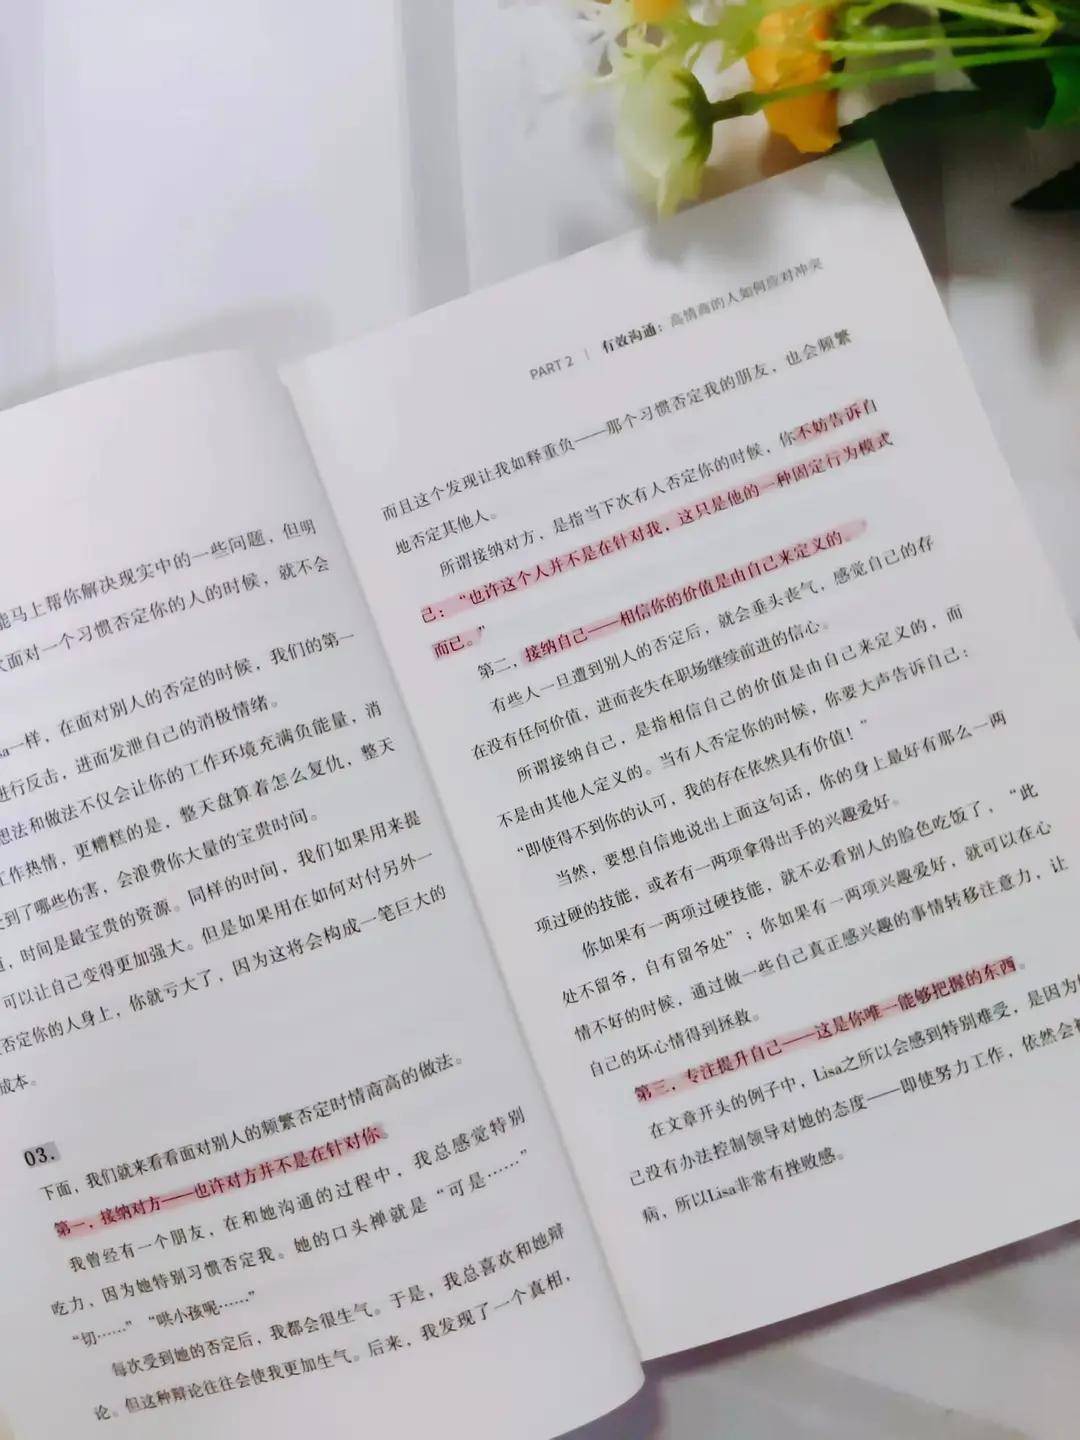 能马上帮你解决现实中的一些问题，但明
面对一个习惯否定你的人的时候，就不会
一样，在面对别人的否定的时候，我们的第
进行反击，进而发泄自己的消极情绪。
想法和做法不仅会让你的工作环境充满负能量，消
工作热情，更糟糕的是，整天盘算着怎么复仇，整天
到了哪些伤害，会浪费你大量的宝贵时间。
，时间是最宝贵的资源。同样的时间，我们如果用来提
可以让自己变得更加强大。但是如果用在如何对付另外一
否定你的人身上，你就亏大了，因为这将会构成一笔巨大的
成本。
03.
下面，我们就来看看面对别人的频繁否定时情商高的做法。
第一，接纳对方——也许对方并不是在针对你。
我曾经有一个朋友，在和她沟通的过程中，我总感觉特别
吃力，因为她特别习惯否定我。她的口头禅就是“可是……”
“切……”“哄小孩呢……”
每次受到她的否定后，我都会很生气。于是，我总喜欢和她辩
论。但这种辩论往往会使我更加生气。后来，我发现了一个真相，
PART 2 | 有效沟通：高情商的人如何应对冲突
而且这个发现让我如释重负——那个习惯否定我的朋友，也会频繁
地否定其他人。
所谓接纳对方，是指当下次有人否定你的时候，你不妨告诉自
己：“也许这个人并不是在针对我，这只是他的一种固定行为模式
而已。”
第二，接纳自己——相信你的价值是由自己来定义的。
有些人一旦遭到别人的否定后，就会垂头丧气，感觉自己的存
在没有任何价值，进而丧失在职场继续前进的信心。
所谓接纳自己，是指相信自己的价值是由自己来定义的，而
不是由其他人定义的。当有人否定你的时候，你要大声告诉自己：
“即使得不到你的认可，我的存在依然具有价值！”
当然，要想自信地说出上面这句话，你的身上最好有那么一两
项过硬的技能，或者有一两项拿得出手的兴趣爱好。
你如果有一两项过硬技能，就不必看别人的脸色吃饭了，“此
处不留爷，自有留爷处”；你如果有一两项兴趣爱好，就可以在心
情不好的时候，通过做一些自己真正感兴趣的事情转移注意力，让
自己的坏心情得到拯救。
第三，专注提升自己——这是你唯一能够把握的东西。
在文章开头的例子中，Lisa之所以会感到特别难受，是因为
己没有办法控制领导对她的态度——即使努力工作，依然会
病，所以Lisa非常有挫败感。